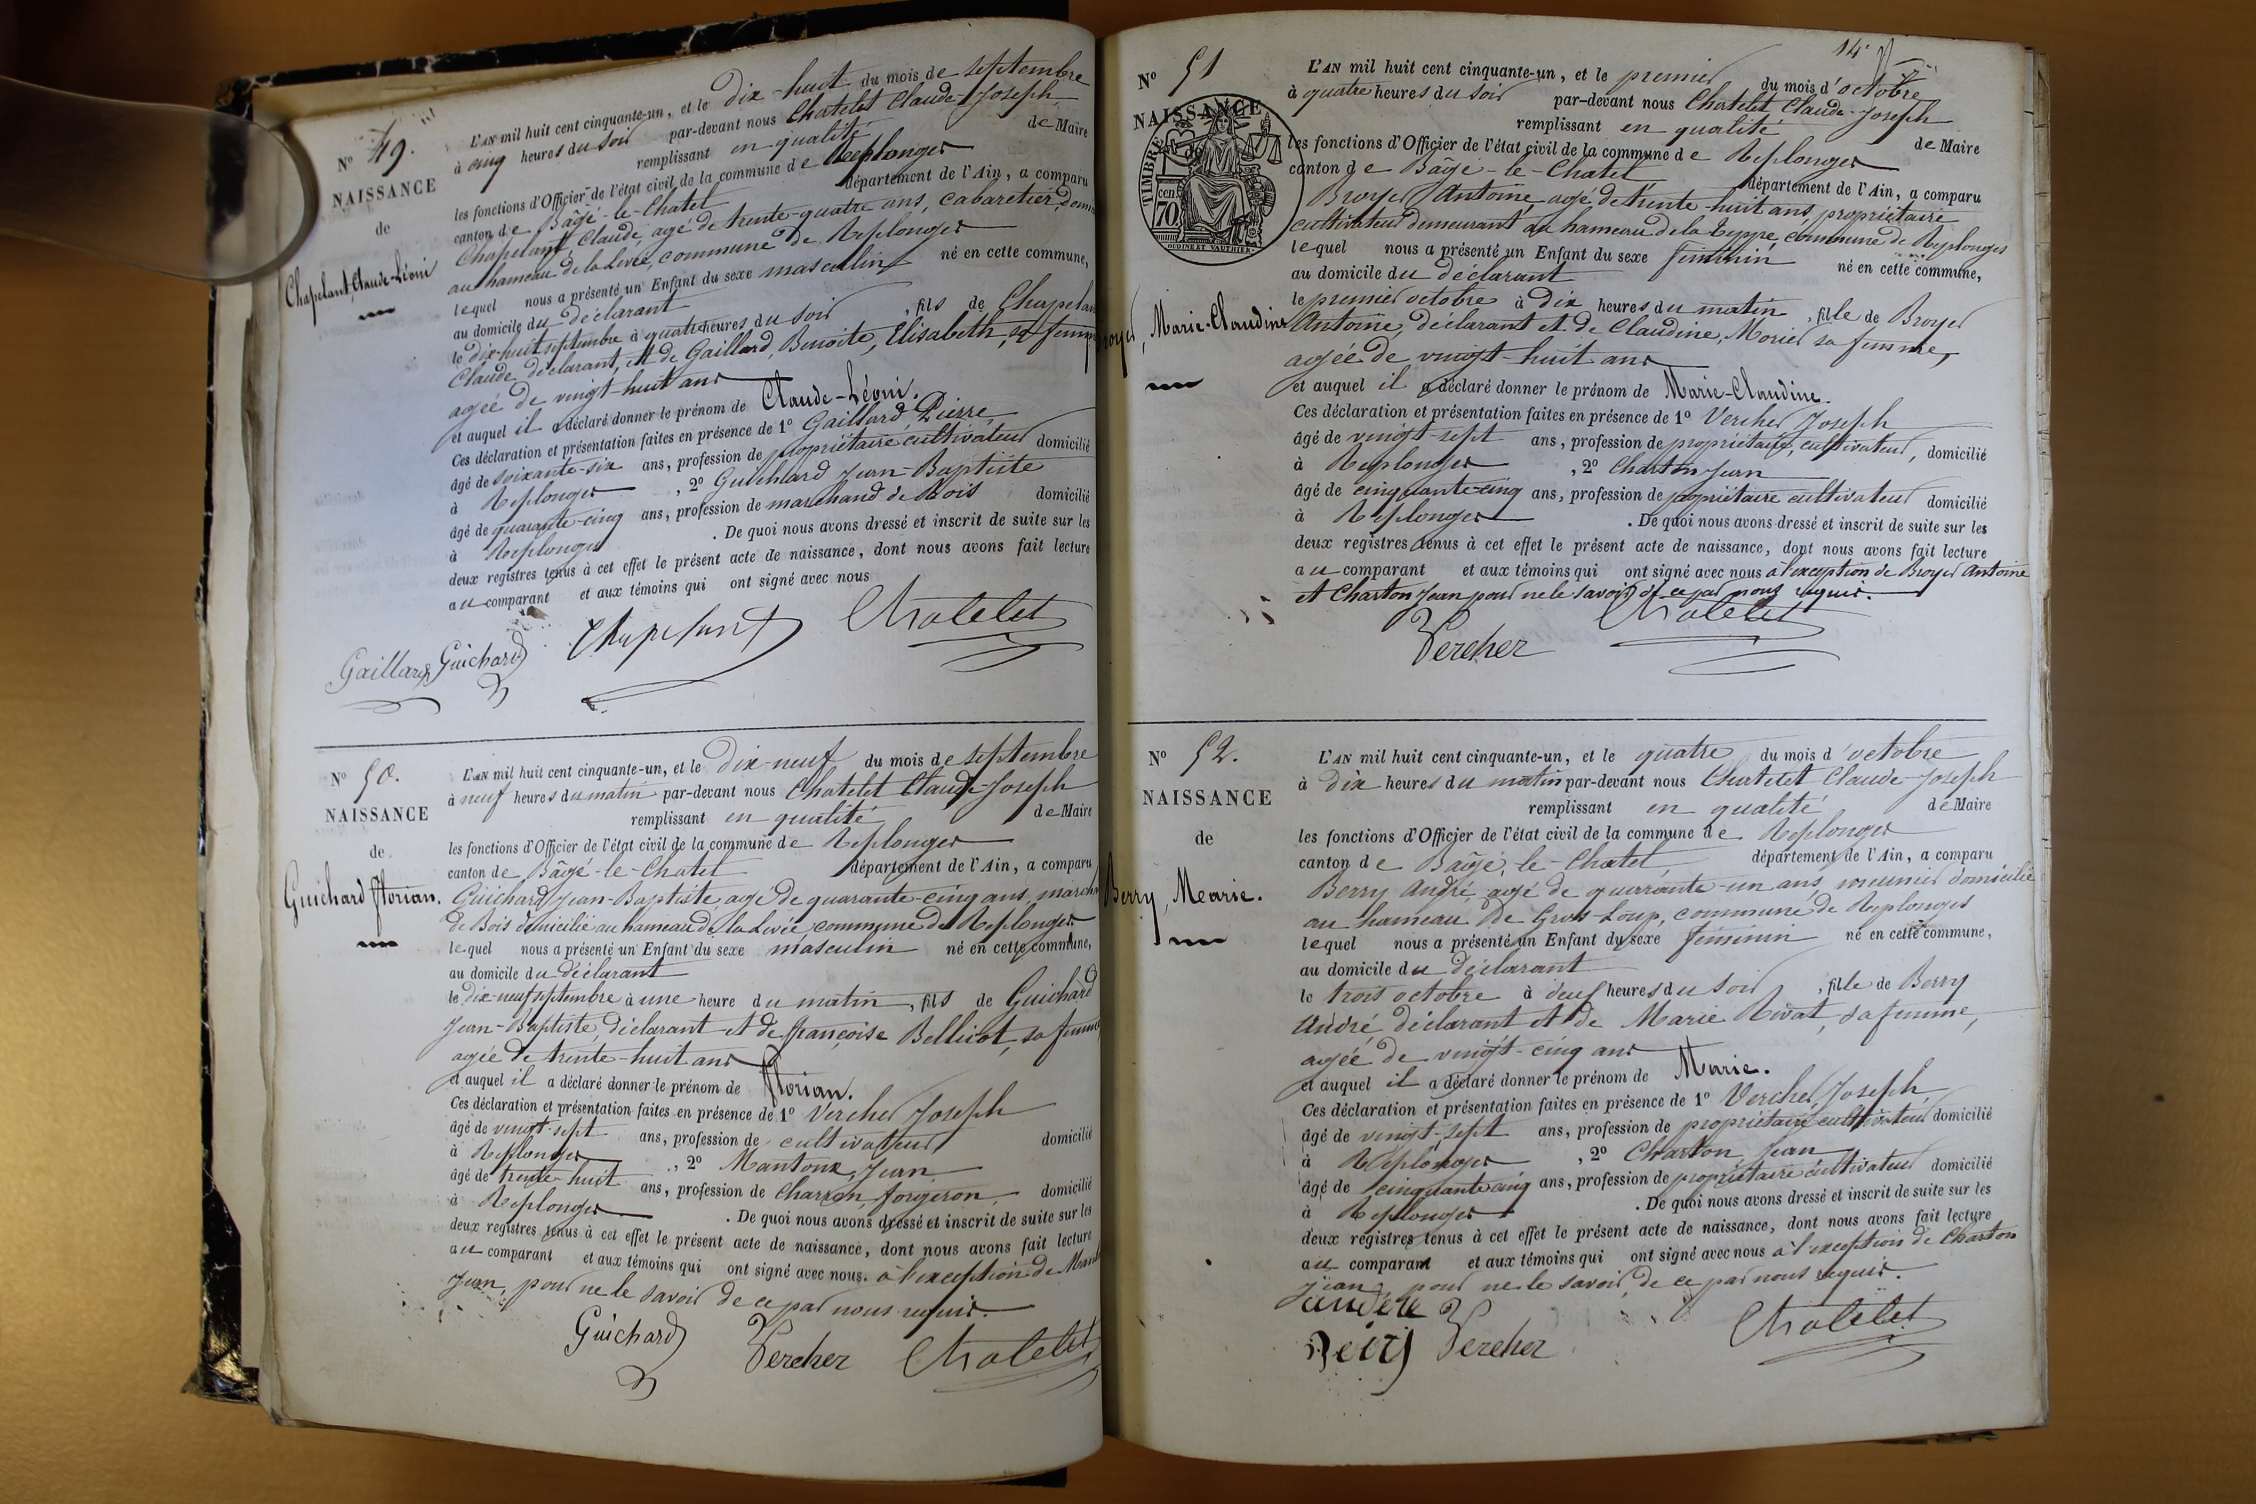 N° 49.
NAISSANCE
de
Chapelant, Claude-Léoni
L'AN mil huit cent cinquante-un, et le dix-huit du mois de septembre
à cinq heures du soir par-devant nous Chatelet Claude-Joseph
remplissant en qualité de Maire
les fonctions d'Officier de l'état civil de la commune de Replonges
canton de Bâgé-le-Chatel département de l'Ain, a comparu
Chapelant Claude, agé de trente-quatre ans, cabaretier, domi
au hameau de la Levée, commune de Replonges
lequel nous a présenté un Enfant du sexe masculin né en cette commune,
au domicile du déclarant
le dix-huit septembre à quatre heures du soir, fils de Chapelan
Claude, déclarant, et de Gaillard, Benoite, Elisabeth, sa femme
agée de vingt-huit ans
et auquel il a déclaré donner le prénom de Claude-Léoni.
Ces déclaration et présentation faites en présence de 1° Gaillard, Pierre,
âgé de soixante-six ans, profession de propriétaire cultivateur domicilié
à Replonges, 2° Guichard Jean-Baptiste
âgé de quarante-cinq ans, profession de marchand de Bois domicilié
à Replonges. De quoi nous avons dressé et inscrit de suite sur les
deux registres tenus à cet effet le présent acte de naissance, dont nous avons fait lecture
au comparant et aux témoins qui ont signé avec nous
Gaillard Guichard Chapelant Chatelet
N° 50.
NAISSANCE
de
Guichard florian.
L'AN mil huit cent cinquante-un, et le dix-neuf du mois de septembre
à neuf heures du matin par-devant nous Chatelet Claude-Joseph
remplissant en qualité de Maire
les fonctions d'Officier de l'état civil de la commune de Replonges
canton de Bâgé-le-Chatel département de l'Ain, a comparu
Guichard, Jean-Baptiste, agé de quarante-cinq ans, march
de Bois domicilié au hameau de la Levée, commune de Replonges
lequel nous a présenté un Enfant du sexe masculin né en cette commune,
au domicile du déclarant
le dix-neuf septembre à une heure du matin, fils de Guichard
Jean-Baptiste, déclarant et de françoise Bellicot, sa femme
agée de trente-huit ans
et auquel il a déclaré donner le prénom de florian.
Ces déclaration et présentation faites en présence de 1° Vercher Joseph
âgé de vingt-sept ans, profession de cultivateur domicilié
à Replonges, 2° Mantoux, Jean
âgé de trente-huit ans, profession de Charron, forgeron domicilié
à Replonges. De quoi nous avons dressé et inscrit de suite sur les
deux registres tenus à cet effet le présent acte de naissance, dont nous avons fait lecture
au comparant et aux témoins qui ont signé avec nous. à l'exception de
Jean, pour ne le savoir de ce par nous requis.
Guichard Vercher Chatelet
14
N° 51
NAISSANCE
TIMBRE
70 cen
OUDINE ET VAUTHIER
Broyer, Marie-Claudine
L'AN mil huit cent cinquante-un, et le premier du mois d'octobre
à quatre heures du soir par-devant nous Chatelet Claude-Joseph
remplissant en qualité de Maire
les fonctions d'Officier de l'état civil de la commune de Replonges
canton de Bâgé-le-Chatel département de l'Ain, a comparu
Broyer Antoine agé de trente-huit ans, propriétaire
cultivateur demeurant au hameau de la teppe, commune de Replonges
lequel nous a présenté un Enfant du sexe féminin né en cette commune,
au domicile du déclarant
le premier octobre à dix heures du matin, fille de Broyer
Antoine, déclarant et de Claudine, Morier sa femme,
agée de vingt-huit ans
et auquel il a déclaré donner le prénom de Marie-Claudine.
Ces déclaration et présentation faites en présence de 1° Vercher Joseph
âgé de vingt-sept ans, profession de propriétaire, cultivateur, domicilié
à Replonges, 2° Charton Jean
âgé de cinquante-cinq ans, profession de propriétaire cultivateur domicilié
à Replonges. De quoi nous avons dressé et inscrit de suite sur les
deux registres tenus à cet effet le présent acte de naissance, dont nous avons fait lecture
au comparant et aux témoins qui ont signé avec nous à l'exception de Broyer Antoine
et Charton Jean pour ne le savoir de ce par nous requis.
Vercher Chatelet
N° 52.
NAISSANCE
de
Berry, Marie.
L'AN mil huit cent cinquante-un, et le quatre du mois d'octobre
à dix heures du matin par-devant nous Chatelet Claude-Joseph
remplissant en qualité de Maire
les fonctions d'Officier de l'état civil de la commune de Replonges
canton de Bâgé, le-Chatel département de l'Ain, a comparu
Berry André, agé de quarante-un ans, meunier domicilié
au hameau de Gros-Loup, commune de Replonges
lequel nous a présenté un Enfant du sexe féminin né en cette commune,
au domicile du déclarant
le trois octobre à deux heures du soir, fille de Berry
André, déclarant et de Marie Rivat, sa femme,
agée de vingt-cinq ans
et auquel il a déclaré donner le prénom de Marie.
Ces déclaration et présentation faites en présence de 1° Vercher, Joseph,
âgé de vingt-sept ans, profession de propriétaire cultivateur domicilié
à Replonges, 2° Charton, Jean
âgé de cinquante cinq ans, profession de propriétaire cultivateur domicilié
à Replonges. De quoi nous avons dressé et inscrit de suite sur les
deux registres tenus à cet effet le présent acte de naissance, dont nous avons fait lecture
au comparant et aux témoins qui ont signé avec nous à l'exception de Charton
Jean, pour ne le savoir, de ce par nous requis.
andere
Beirj Vercher Chatelet